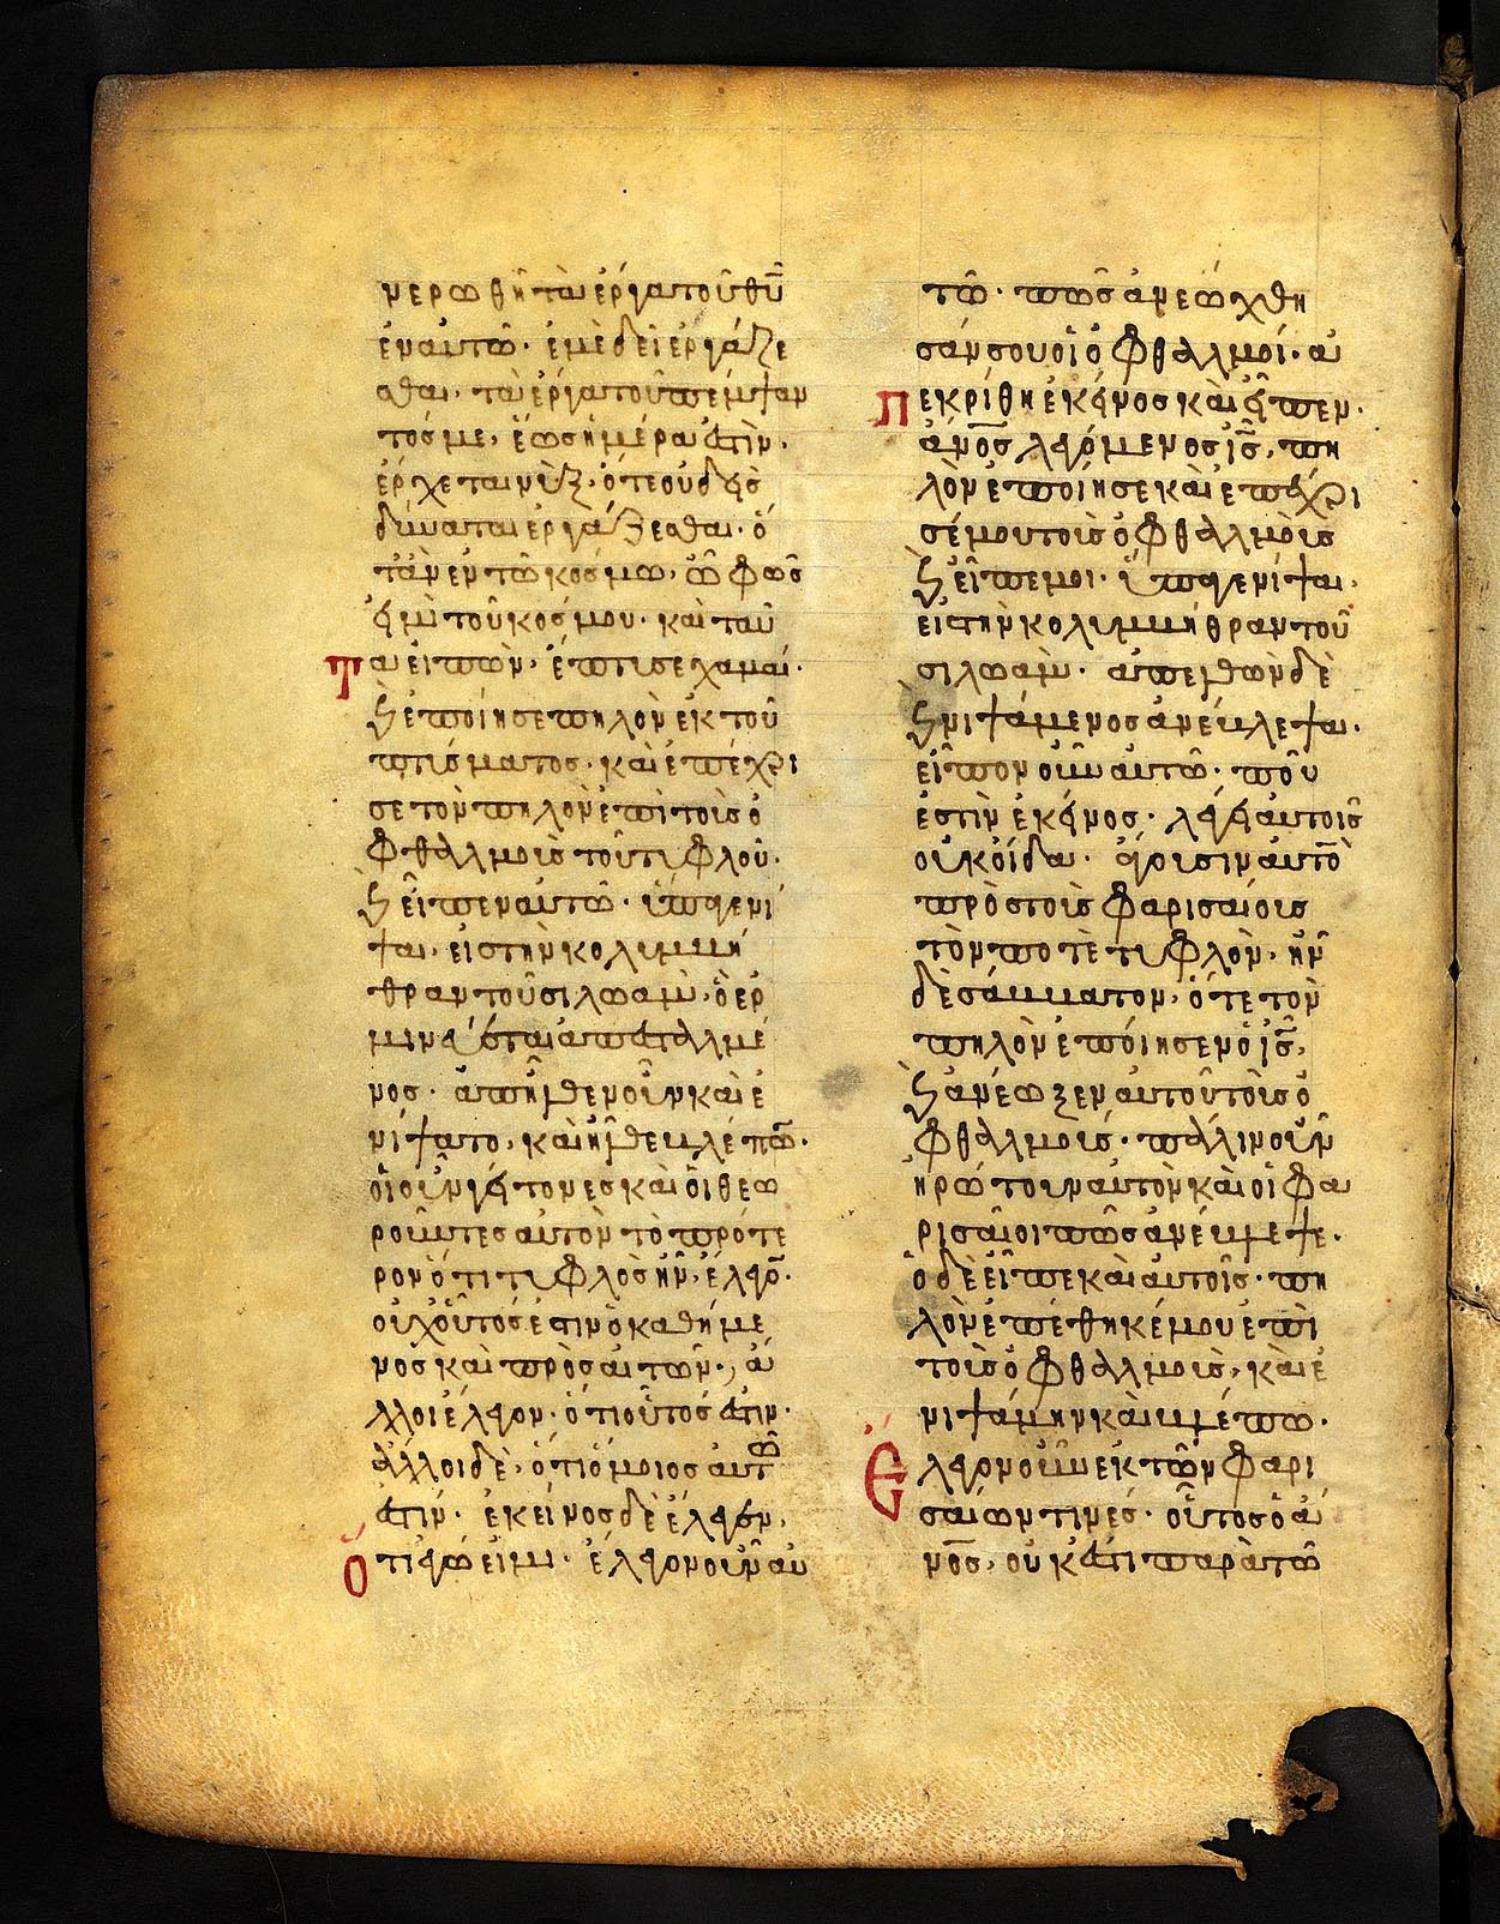 νερωθῆ τὰ ἔργα τοῦ θυ̅
ἐν αὐτῶ· ἐμὲ δεῖ ἐργάζε
σθαι· τὰ ἔργα τοῦ πέμψαν
τός με, ἕως ἡμέρα ἐστὶν·
ἔρχεται νὺξ, ὅτε οὐδεὶς
δύναται ἐργάζεσθαι· ὅ
τὰν ἐν τῶ κόσμω, ὦ φῶς
εἰμὶ τοῦ κόσμου· καὶ ταῦ
Τα εἰπὼν, ἔπτισε χαμαί·
ϗ ἐποίησε πηλὸν ἐκ τοῦ
πτίσματος· καὶ ἐπέχρι
σε τὸν πηλὸν ἐπὶ τοῖς ὀ
φθαλμοῖς τοῦ τυφλοῦ·
ϗ εἶπεν αὐτῶ· ὕπαγε νί
ψαι, εἰς τὴν κολυμβή
θραν τοῦ σιλωὰμ, ὃ ἑρ
μηνεύεται ἀπεσταλμέ
νος· ἀπῆλθεν οὖν καὶ ἐ
νίψατο, καὶ ἦλθε βλέπω̅·
οἱ οὖν γείτονες καὶ οἱ θεω
ροῦντες αὐτὸν τὸ πρότε
ρον ὅτι τυφλὸς ἦν, ἔλεγο̅·
οὐχ οὗτός ἐστιν ὁ καθήμε
νος καὶ προσαιτῶν·, ἄ
λλοι ἔλεγον· ὅτι οὗτός ἐστιν·
ἄλλοι δὲ, ὅτι ὅμοιος αὐτῶ
ἐστιν· ἐκεῖνος δὲ ἔλεγεν,
Ὅτι ἐγώ εἰμι· ἔλεγον οὖν αὐ
τῶ· πῶς ἀνεώχθη
σάν σου οἱ ὀφθαλμοί· ἀ
Πεκρίθη ἐκεῖνος καὶ εἶπεν·
ἄνο̅ς λεγόμενος ι̅ς̅, πη
λὸν ἐποίησε καὶ ἐπέχρι
σέ μου τοὺς ὀφθαλμοὺς
ϗ εἶπέ μοι· ὕπαγε νίψαι,
εἰς τὴν κολυμβήθραν τοῦ
σιλωὰμ· ἀπελθὼν δὲ
ϗ νιψάμενος ἀνέβλεψα·
εἶπον οὖν αὐτῶ· ποῦ
ἐστὶν ἐκεῖνος· λέγει αὐτοῖς
οὐκ οἶδα· ἄγουσιν αὐτὸ̅
πρὸς τοὺς φαρισαίους
τὸν ποτὲ τυφλὸν, ἦν
δὲ σάββατον, ὅτε τὸν
πηλὸν ἐποίησεν ὁ ι̅ς̅,
ϗ ἀνέωξεν αὐτοῦ τοὺς ὀ
φθαλμούς· πάλιν οὖν
ἠρώτουν αὐτὸν καὶ οἱ φα
ρισαῖοι πῶς ἀνέβλεψε·
ὁ δὲ εἶπε καὶ αὐτοῖς· πη
λὸν ἐπέθηκέ μου ἐπὶ
τοὺς ὀφθαλμοὺς, καὶ ἐ
νιψάμην καὶ βλέπω·
Ἔλεγον οὖν ἐκ τῶν φαρι
σαίων τινές· οὗτος ὁ ἄ
νο̅ς, οὐκ ἔστι παρὰ τῶ